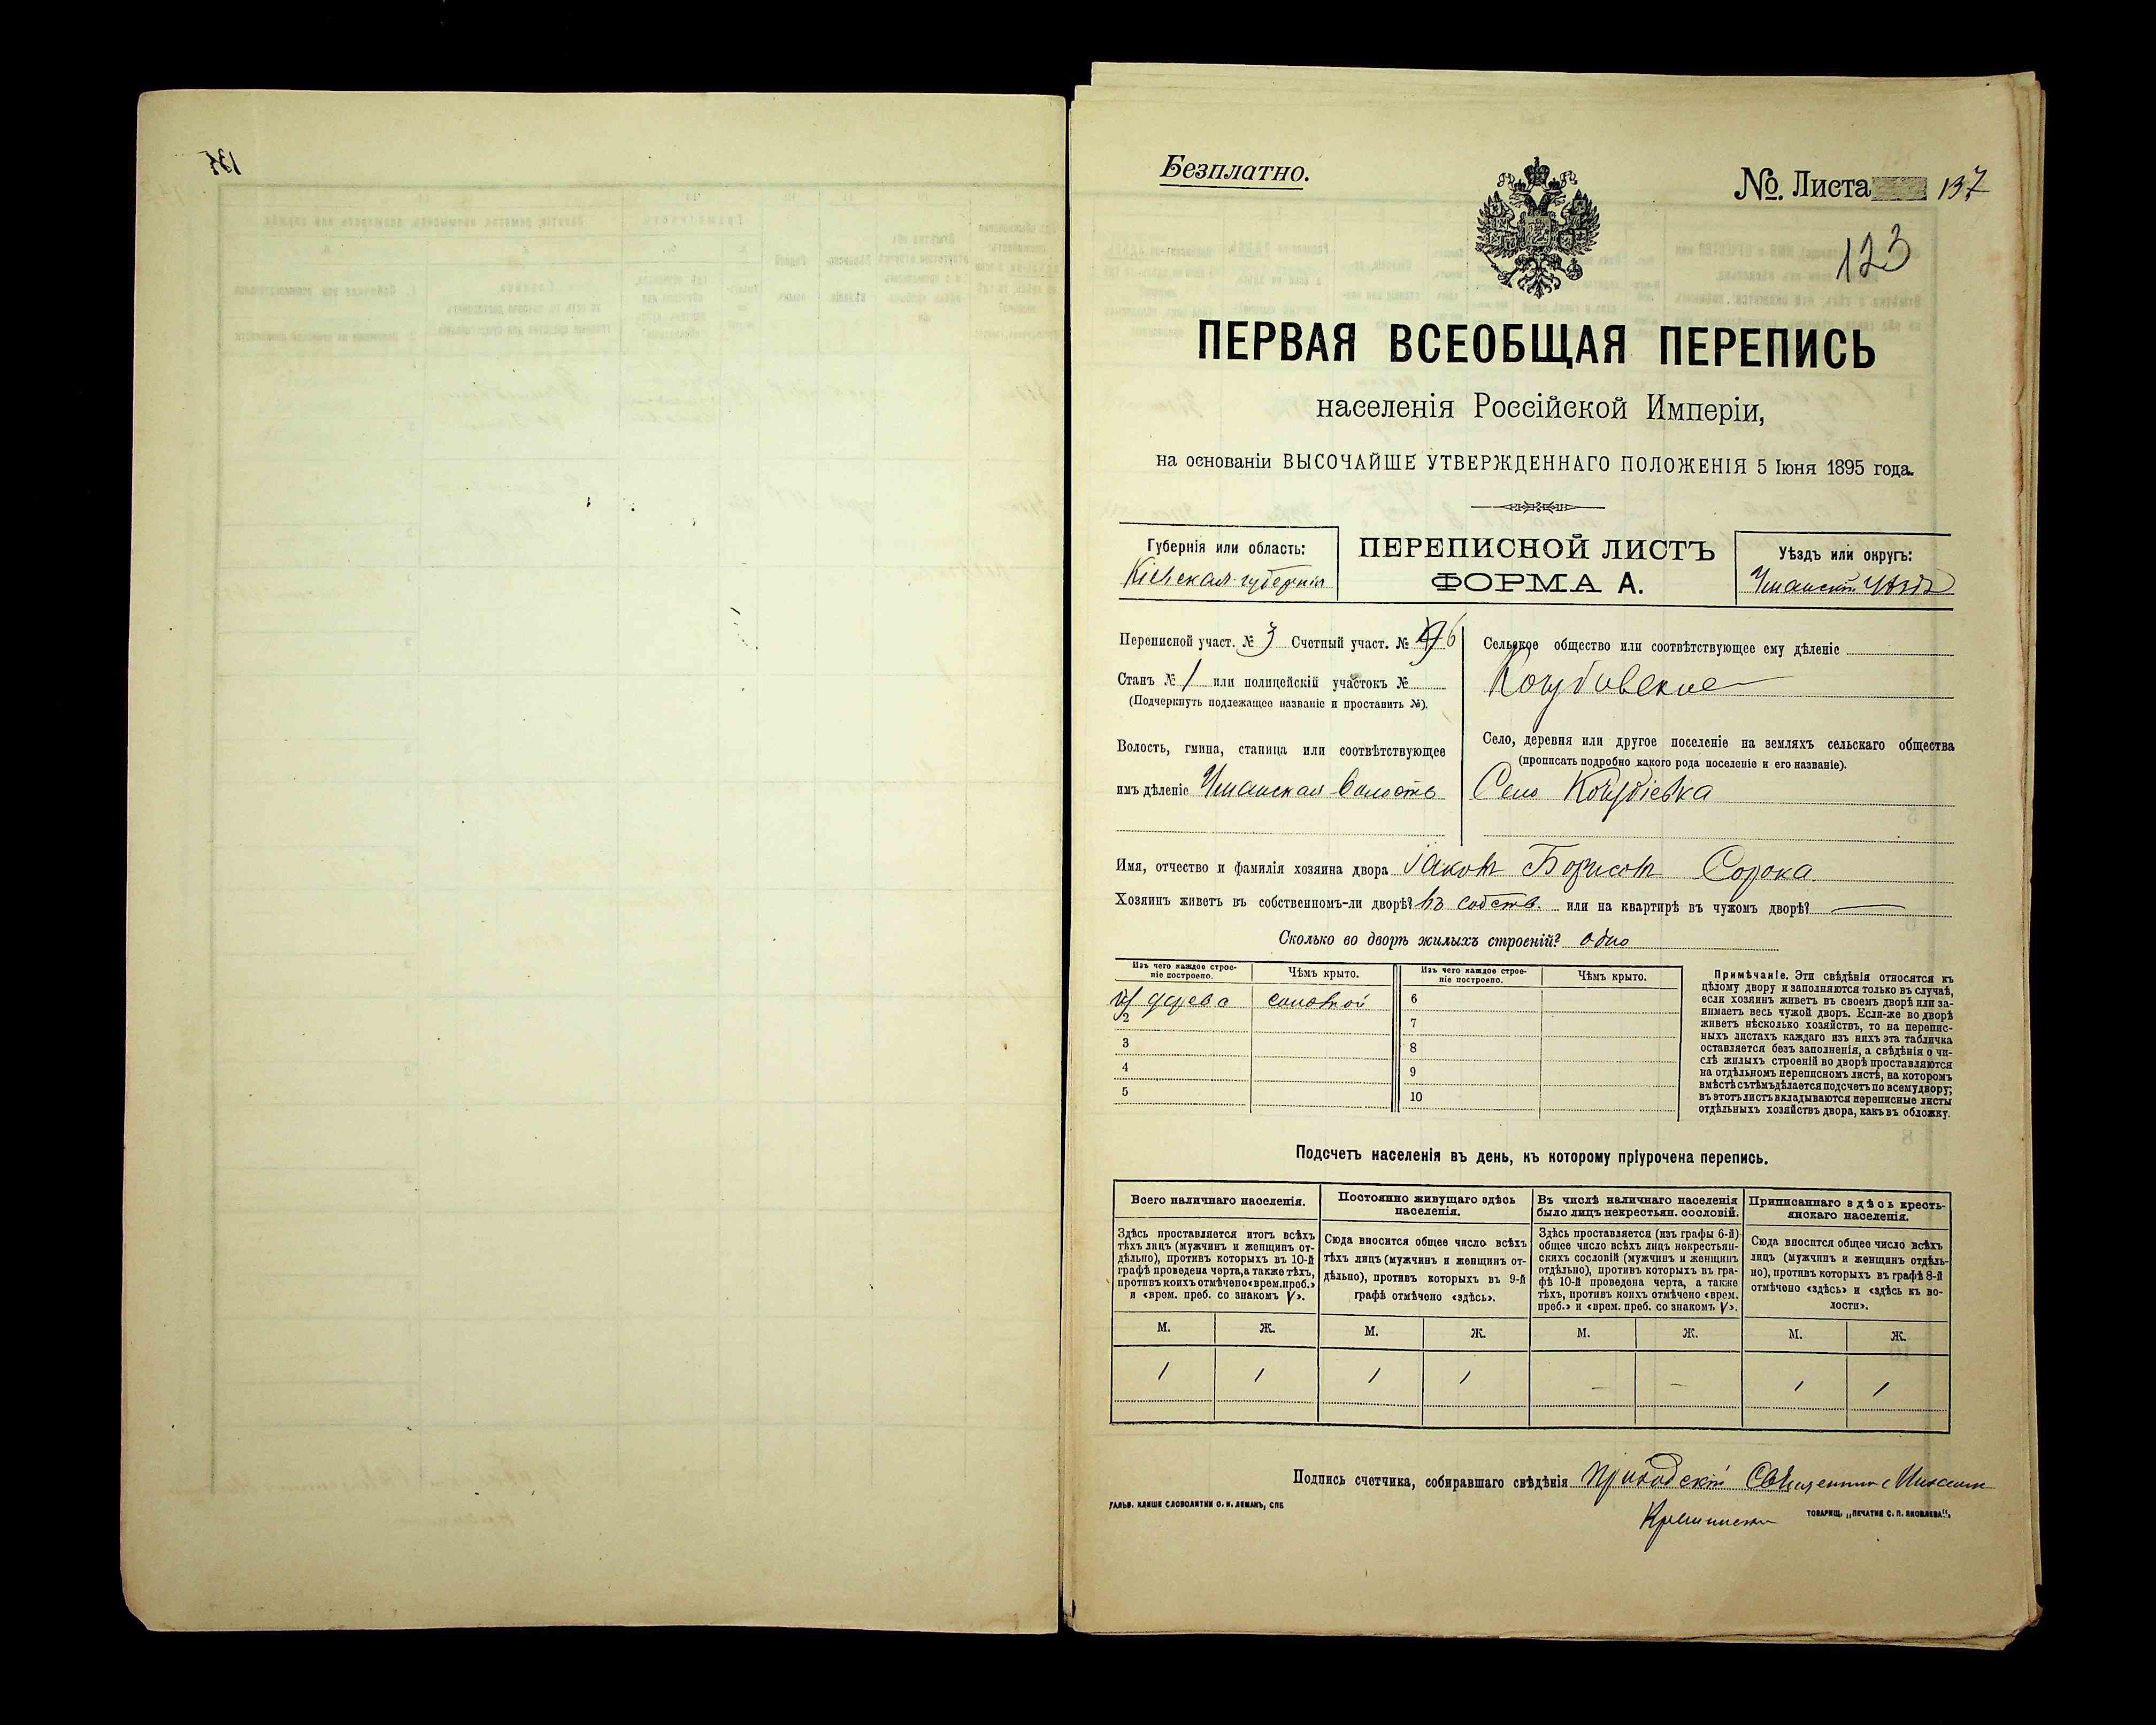 Безплатно.
№. Листа 137
123
ПЕРВАЯ ВСЕОБЩАЯ ПЕРЕПИСЬ
населенія Россійской Имперіи,
на основаніи ВЫСОЧАЙШЕ УТВЕРЖДЕННАГО ПОЛОЖЕНІЯ 5 Іюня 1895 года.
Губернія или область:
Кіевская губернія
ПЕРЕПИСНОЙ ЛИСТЪ
ФОРМА А.
Уѣздъ или округъ:
Уманскій Уѣздъ
Переписной участ. № 3 Счетный участ. № 6
Станъ № 1 или полицейскій участокъ №
(Подчеркнуть подлежащее названіе и проставить №).
Волость, гмина, станица или соотвѣтствующее
имъ дѣленіе Уманская Волость
Сельское общество или соотвѣтствующее ему дѣленіе
Село, деревня или другое поселеніе на земляхъ сельскаго общества
(прописать подробно какого рода поселеніе и его названіе).
Село
Имя, отчество и фамилія хозяина двора Іаковъ Борисовъ Сорока
Хозяинъ живетъ въ собственномъ-ли дворѣ? въ собств. или на квартирѣ въ чужомъ дворѣ? —
Сколько во дворѣ жилыхъ строеній? одно
Изъ чего каждое строеніе построено.
Чѣмъ крыто.
Изъ чего каждое строеніе построено.
Чѣмъ крыто.
из дерева соломой
2
3
4
5
6
7
8
9
10
Примѣчаніе. Эти свѣдѣнія относятся къ
цѣлому двору и заполняются только въ случаѣ,
если хозяинъ живетъ въ своемъ дворѣ или за-
нимаетъ весь чужой дворъ. Если-же во дворѣ
живетъ нѣсколько хозяйствъ, то на перепис-
ныхъ листахъ каждаго изъ нихъ эта табличка
оставляется безъ заполненія, а свѣдѣнія о чи-
слѣ жилыхъ строеній во дворѣ проставляются
на отдѣльномъ переписномъ листѣ, на которомъ
вмѣстѣ съ тѣмъ дѣлается подсчетъ по всему двору;
въ этотъ листъ вкладываются переписные листы
отдѣльныхъ хозяйствъ двора, какъ въ обложку.
Подсчетъ населенія въ день, къ которому пріурочена перепись.
Всего наличнаго населенія.
Здѣсь проставляется итогъ всѣхъ
тѣхъ лицъ (мужчинъ и женщинъ от-
дѣльно), противъ которыхъ въ 10-й
графѣ проведена черта, а также тѣхъ,
противъ коихъ отмѣчено «врем. преб.»
и «врем. преб. со знакомъ V».
Постоянно живущаго здѣсь
населенія.
Сюда вносится общее число всѣхъ
тѣхъ лицъ (мужчинъ и женщинъ от-
дѣльно), противъ которыхъ въ 9-й
графѣ отмѣчено «здѣсь».
Въ числѣ наличнаго населенія
было лицъ некрестьян. сословій.
Здѣсь проставляется (изъ графы 6-й)
общее число всѣхъ лицъ некрестьян-
скихъ сословій (мужчинъ и женщинъ
отдѣльно), противъ которыхъ въ гра-
фѣ 10-й проведена черта, а также
тѣхъ, противъ коихъ отмѣчено «врем.
преб.» и «врем. преб. со знакомъ V».
Приписаннаго здѣсь кресть-
янскаго населенія.
Сюда вносится общее число всѣхъ
лицъ (мужчинъ и женщинъ отдѣль-
но), противъ которыхъ въ графѣ 8-й
отмѣчено «здѣсь» и «здѣсь въ во-
лости».
М. Ж. М. Ж. М. Ж. М. Ж.
1 1 1 1 — — 1 1
Подпись счетчика, собиравшаго свѣдѣнія Приходскій Священникъ
ГАЛЬВ. КЛИШЕ СЛОВОЛИТНИ О. И. ЛЕМАНЪ, СПБ
ТОВАРИЩ. „ПЕЧАТНЯ С. П. ЯКОВЛЕВА“.